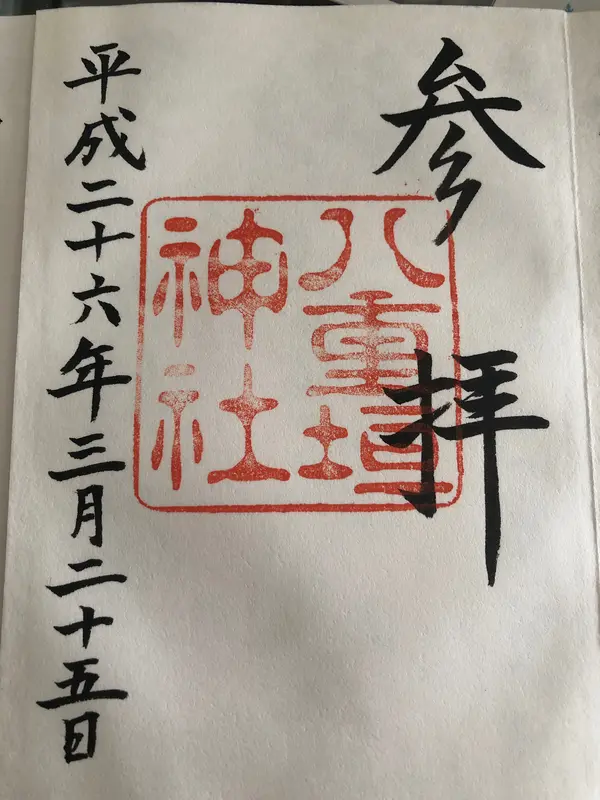 参拝
八重垣
神社
平成二十六年三月二十五日